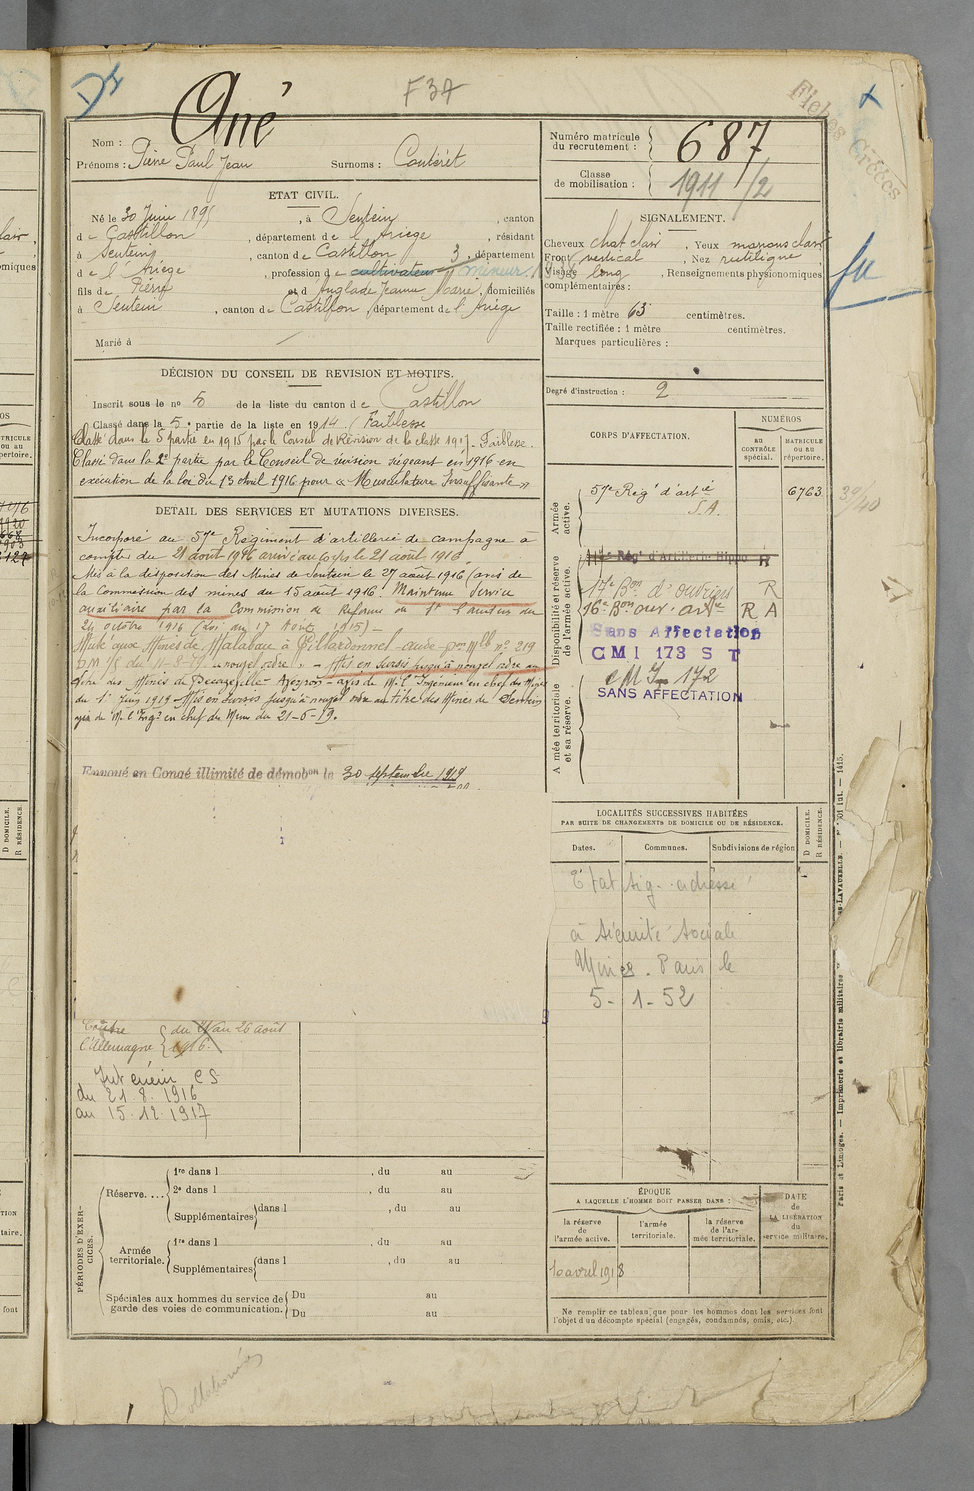 F 37
Ané
Nom :
Prénoms : Pierre Paul Jean Surnoms : Couteret
Numéro matricule du recrutement : 687
Classe de mobilisation : 1911/2
ETAT CIVIL.
Né le 30 Juin 1895, à Sentein, canton
de Castillon, département de l'Ariège, résidant
à Sentein, canton de Castillon, département
d de l'Ariège, profession de cultivateur mineur
fils de Pierre et d'Anglade Jeanne Marie, domiciliés
à Sentein, canton de Castillon, département de l'Ariège
Marié à
SIGNALEMENT.
Cheveux chat clair, Yeux marrons clair
Front vertical, Nez rectiligne
Visage long, Renseignements physionomiques
complémentaires :
Taille : 1 mètre 63 centimètres.
Taille rectifiée : 1 mètre centimètres.
Marques particulières :
Degré d'instruction : 2
DÉCISION DU CONSEIL DE REVISION ET MOTIFS.
Inscrit sous le no 5 de la liste du canton de Castillon
Classé dans la 5e partie de la liste en 1914. Faiblesse
Classé dans la 5 partie en 1915 par le Conseil de Révision de la classe 1917 - Faiblesse.
Classé dans la 2e partie par le Conseil de révision siégeant en 1916 en
exécution de la loi du 13 avril 1916 pour « Musculature Insuffisante »
DETAIL DES SERVICES ET MUTATIONS DIVERSES.
Incorporé au 57e Régiment d'artillerie de campagne à
compter du 21 août 1916 arrivé au corps le 21 août 1916
Mis à la disposition des Mines de Sentein le 27 août 1916 (avis de
la Commission des mines du 15 août 1916. Maintenu Service
auxiliaire par la Commission de Réforme de St Gaudens du
24 octobre 1916 (Loi du 17 Août 1915) -
Muté aux Mines de Malabau à Villardonnel - aude
nouvel ordre » - Mis en sursis jusqu'à nouvel ordre au
titre des Mines de Decazeville - Aveyron - avis de Mr l'Ingénieur en chef des Mines
du 1er Juin 1919 - Mis en sursis jusqu'à nouvel ordre au titre des Mines de Sentein
avis de Mr l'Ingr en chef des Mines du 21-6-19.
Envoyé en Congé illimité de démobon le 30 septembre 1919
CORPS D'AFFECTATION.
NUMÉROS
AU CONTRÔLE spécial.
MATRICULE ou au répertoire.
Armée active.
57e Régt d'artie 6763
S.A.
Disponibilité et réserve de l'armée active.
Régt d'Artillerie Hippo R
17e Bon d'ouvriers R
16e Bon ouv. artie R A
Sans Affectation
CMI 173 S T
Armée territoriale et sa réserve.
CMI 172
SANS AFFECTATION
LOCALITÉS SUCCESSIVES HABITÉES
PAR SUITE DE CHANGEMENTS DE DOMICILE OU DE RÉSIDENCE.
Dates. Communes. Subdivisions de région
D DOMICILE.
R RÉSIDENCE.
Etat sig. adressé
à Sécurité Sociale
Mines. Paris le
5-1-52
Contre l'Allemagne du 21 au 26 août 1916.
Intérieur CS
du 21.8.1916
au 15.12.1917
PÉRIODES D'EXERCICES.
Réserve....
1re dans l , du au
2e dans l , du au
Supplémentaires dans l , du au
Armée territoriale.
1re dans l , du au
Supplémentaires dans l , du au
Spéciales aux hommes du service de garde des voies de communication.
Du au
Du au
ÉPOQUE
A LAQUELLE L'HOMME DOIT PASSER DANS :
la réserve de l'armée active.
l'armée territoriale.
la réserve de l'armée territoriale.
DATE de LA LIBÉRATION du service militaire.
10 avril 1918
Ne remplir ce tableau que pour les hommes dont les services font
l'objet d'un décompte spécial (engagés, condamnés, omis, etc.)